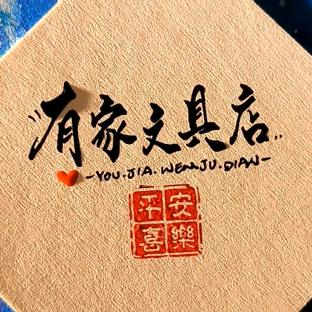 有家文具店
-YOU.JIA.WENJU.DIAN-
平安
喜樂